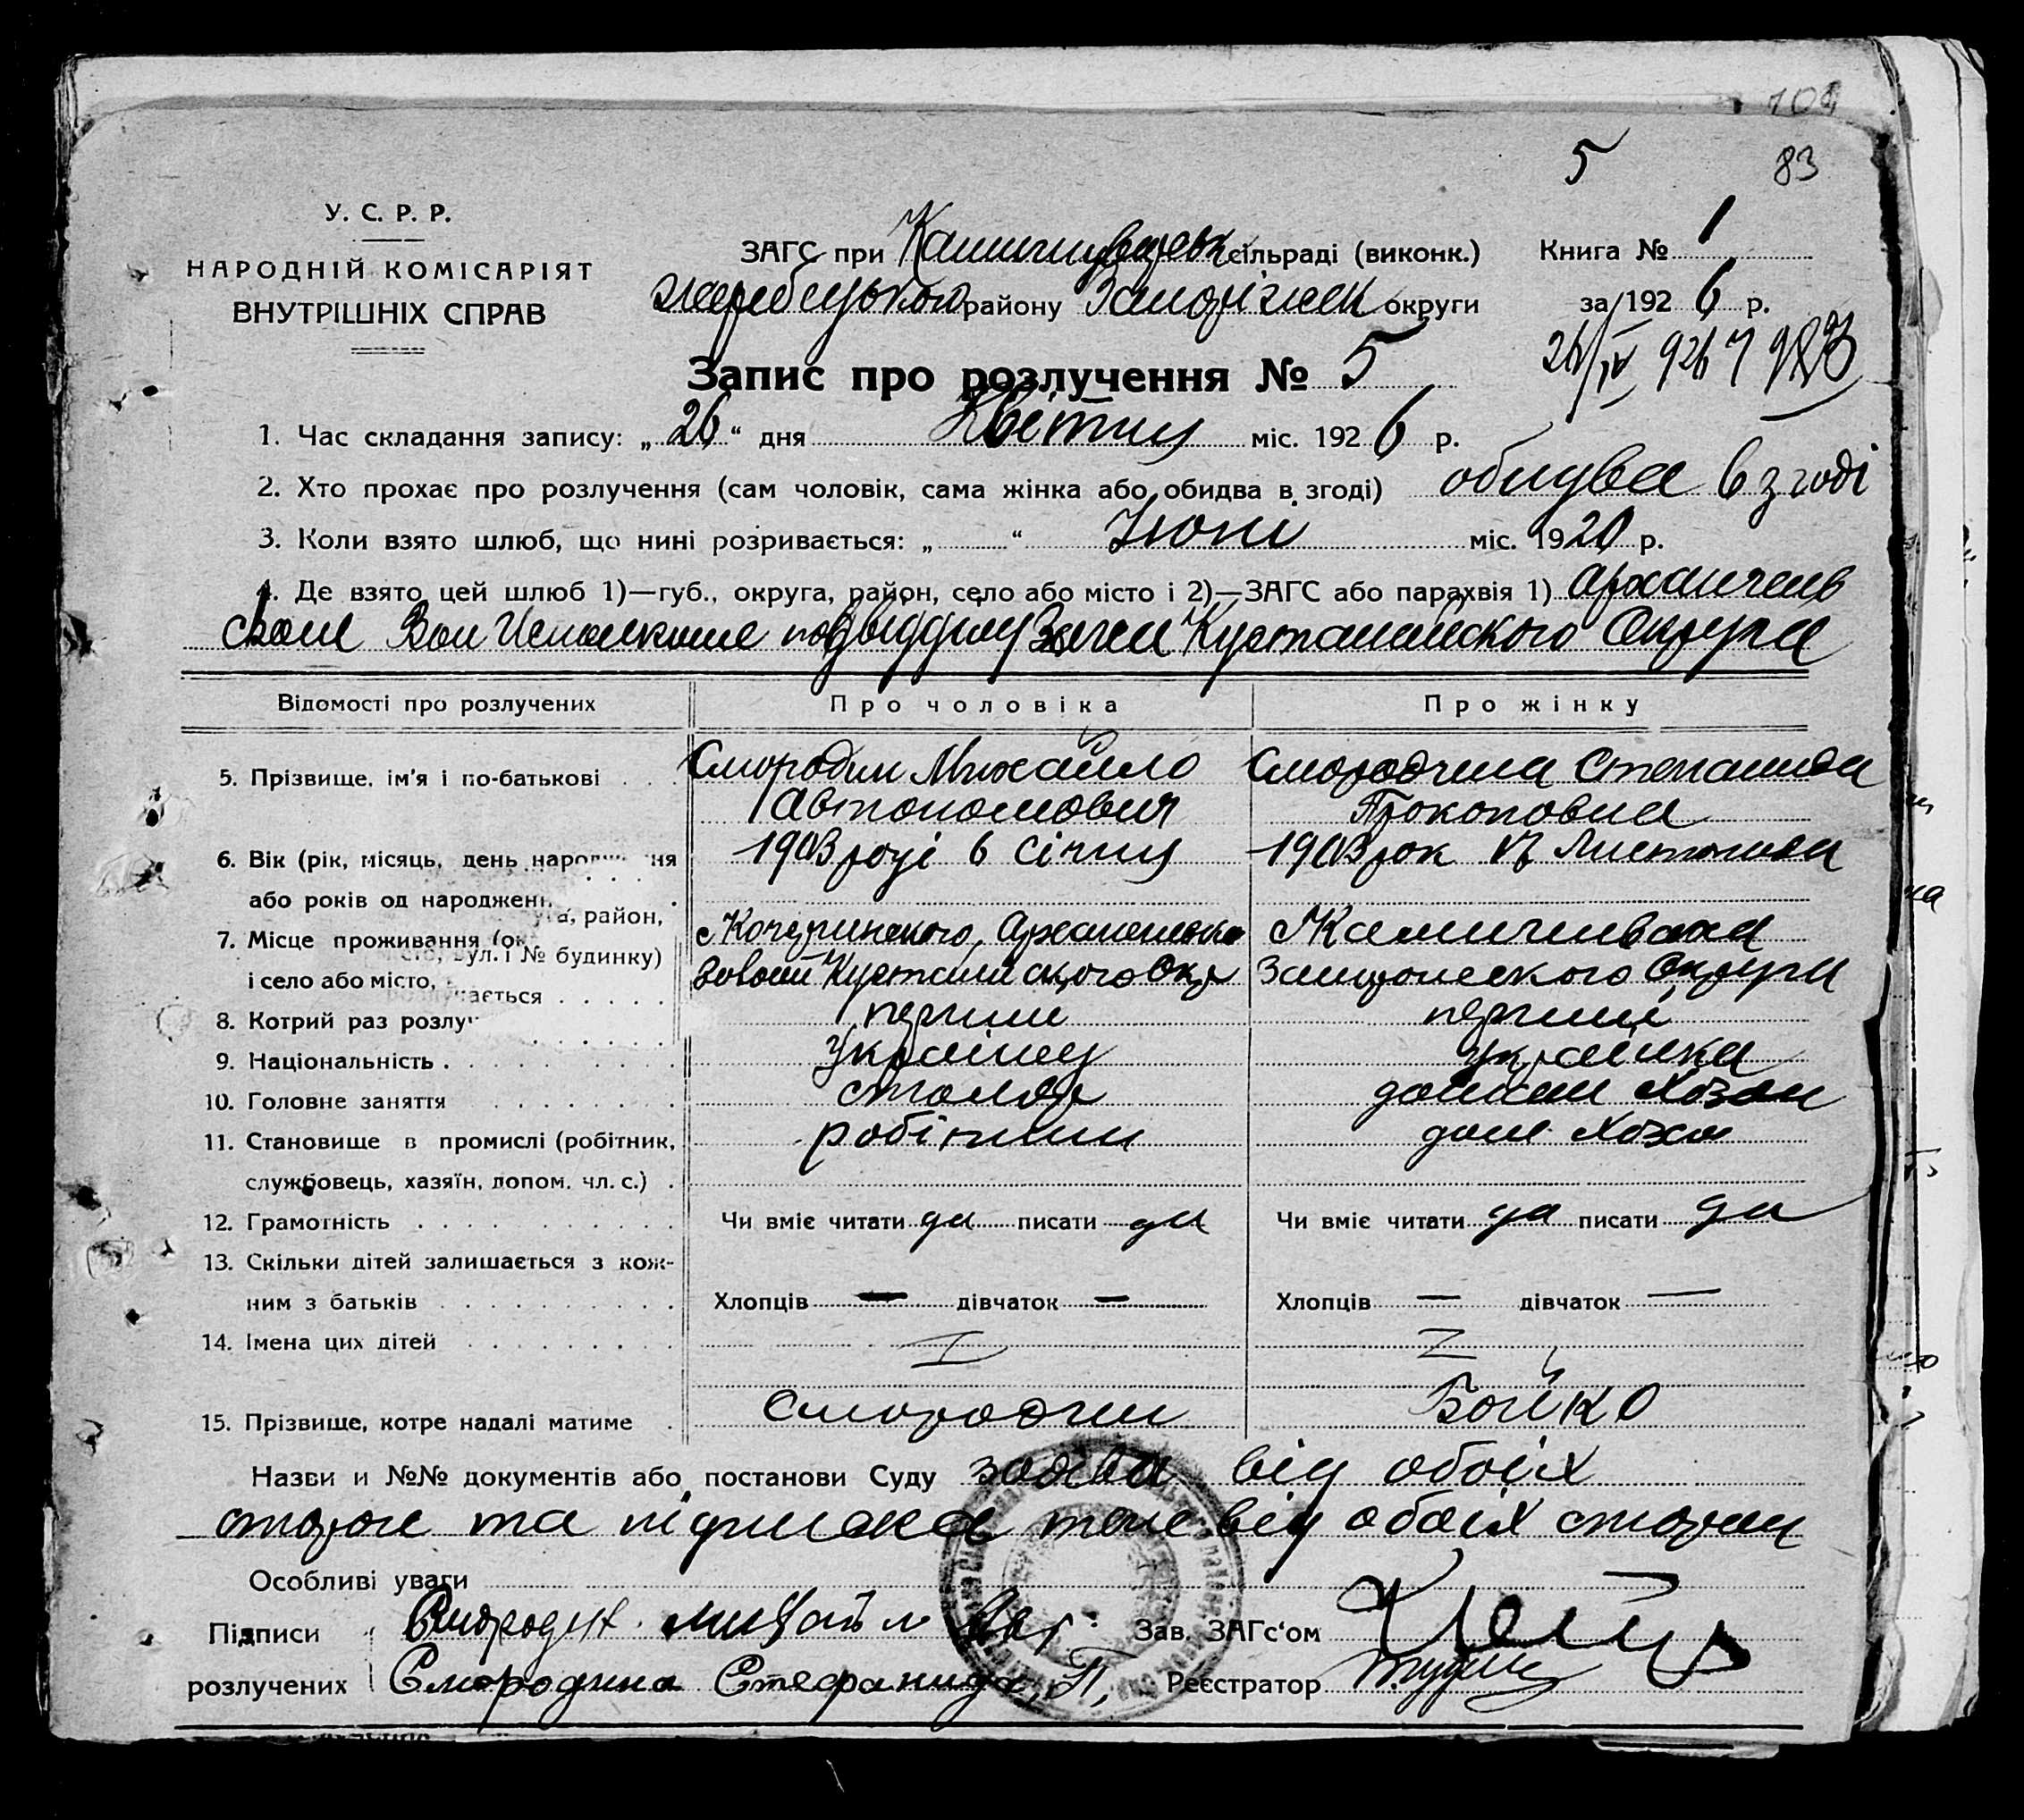 5
83
У. С. Р. Р.
НАРОДНІЙ КОМІСАРІЯТ
ВНУТРІШНІХ СПРАВ
ЗАГС при сільраді (виконк.)
Книга № 1
Жеребецького району Запоріжск округи
за 1926 р.
Запис про розлучення № 5
1. Час складання запису: „26“ дня Квітня міс. 1926 р.
2. Хто прохає про розлучення (сам чоловік, сама жінка або обидва в згоді) обидва в згоді
3. Коли взято шлюб, що нині розривається: „ “ Июні міс. 1920 р.
4. Де взято цей шлюб 1)—губ., округа, район, село або місто і 2)—ЗАГС або парахвія 1)
Кустанайского Округа
Відомості про розлучених
Про чоловіка
Про жінку
5. Прізвище, ім'я і по-батькові
Смородин Михайло
Автономович
Смородина Степанида
Прокоповна
6. Вік (рік, місяць, день народження
або років од народжен
1903 році 6 Січня
1903 рок Листопада
7. Місце проживання (ок уга, район,
і село або місто, вул. і № будинку)
Кустанайского Окр
Камишеваха
Запорожского Округа
8. Котрий раз розлучається
перший
перший
9. Національність
Українец
українка
10. Головне заняття
столяр
домашн хозяй
11. Становище в промислі (робітник,
службовець, хазяїн, допом. чл. с.)
робітник
дом хозяй
12. Грамотність
Чи вміє читати да писати да
Чи вміє читати да писати да
13. Скільки дітей залишається з кож-
ним з батьків
Хлопців — дівчаток —
Хлопців — дівчаток —
14. Імена цих дітей
15. Прізвище, котре надалі матиме
Смородин
Бойко
Назви и №№ документів або постанови Суду заява від обоїх
сторон та підписка теж від обоїх сторон
Особливі уваги
Підписи
розлучених
Смородин Михайл Авт.
Смородина Стефанида, П.
Зав. ЗАГс'ом
Реєстратор